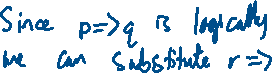 Since p=>q is logically
we can substitute r=>